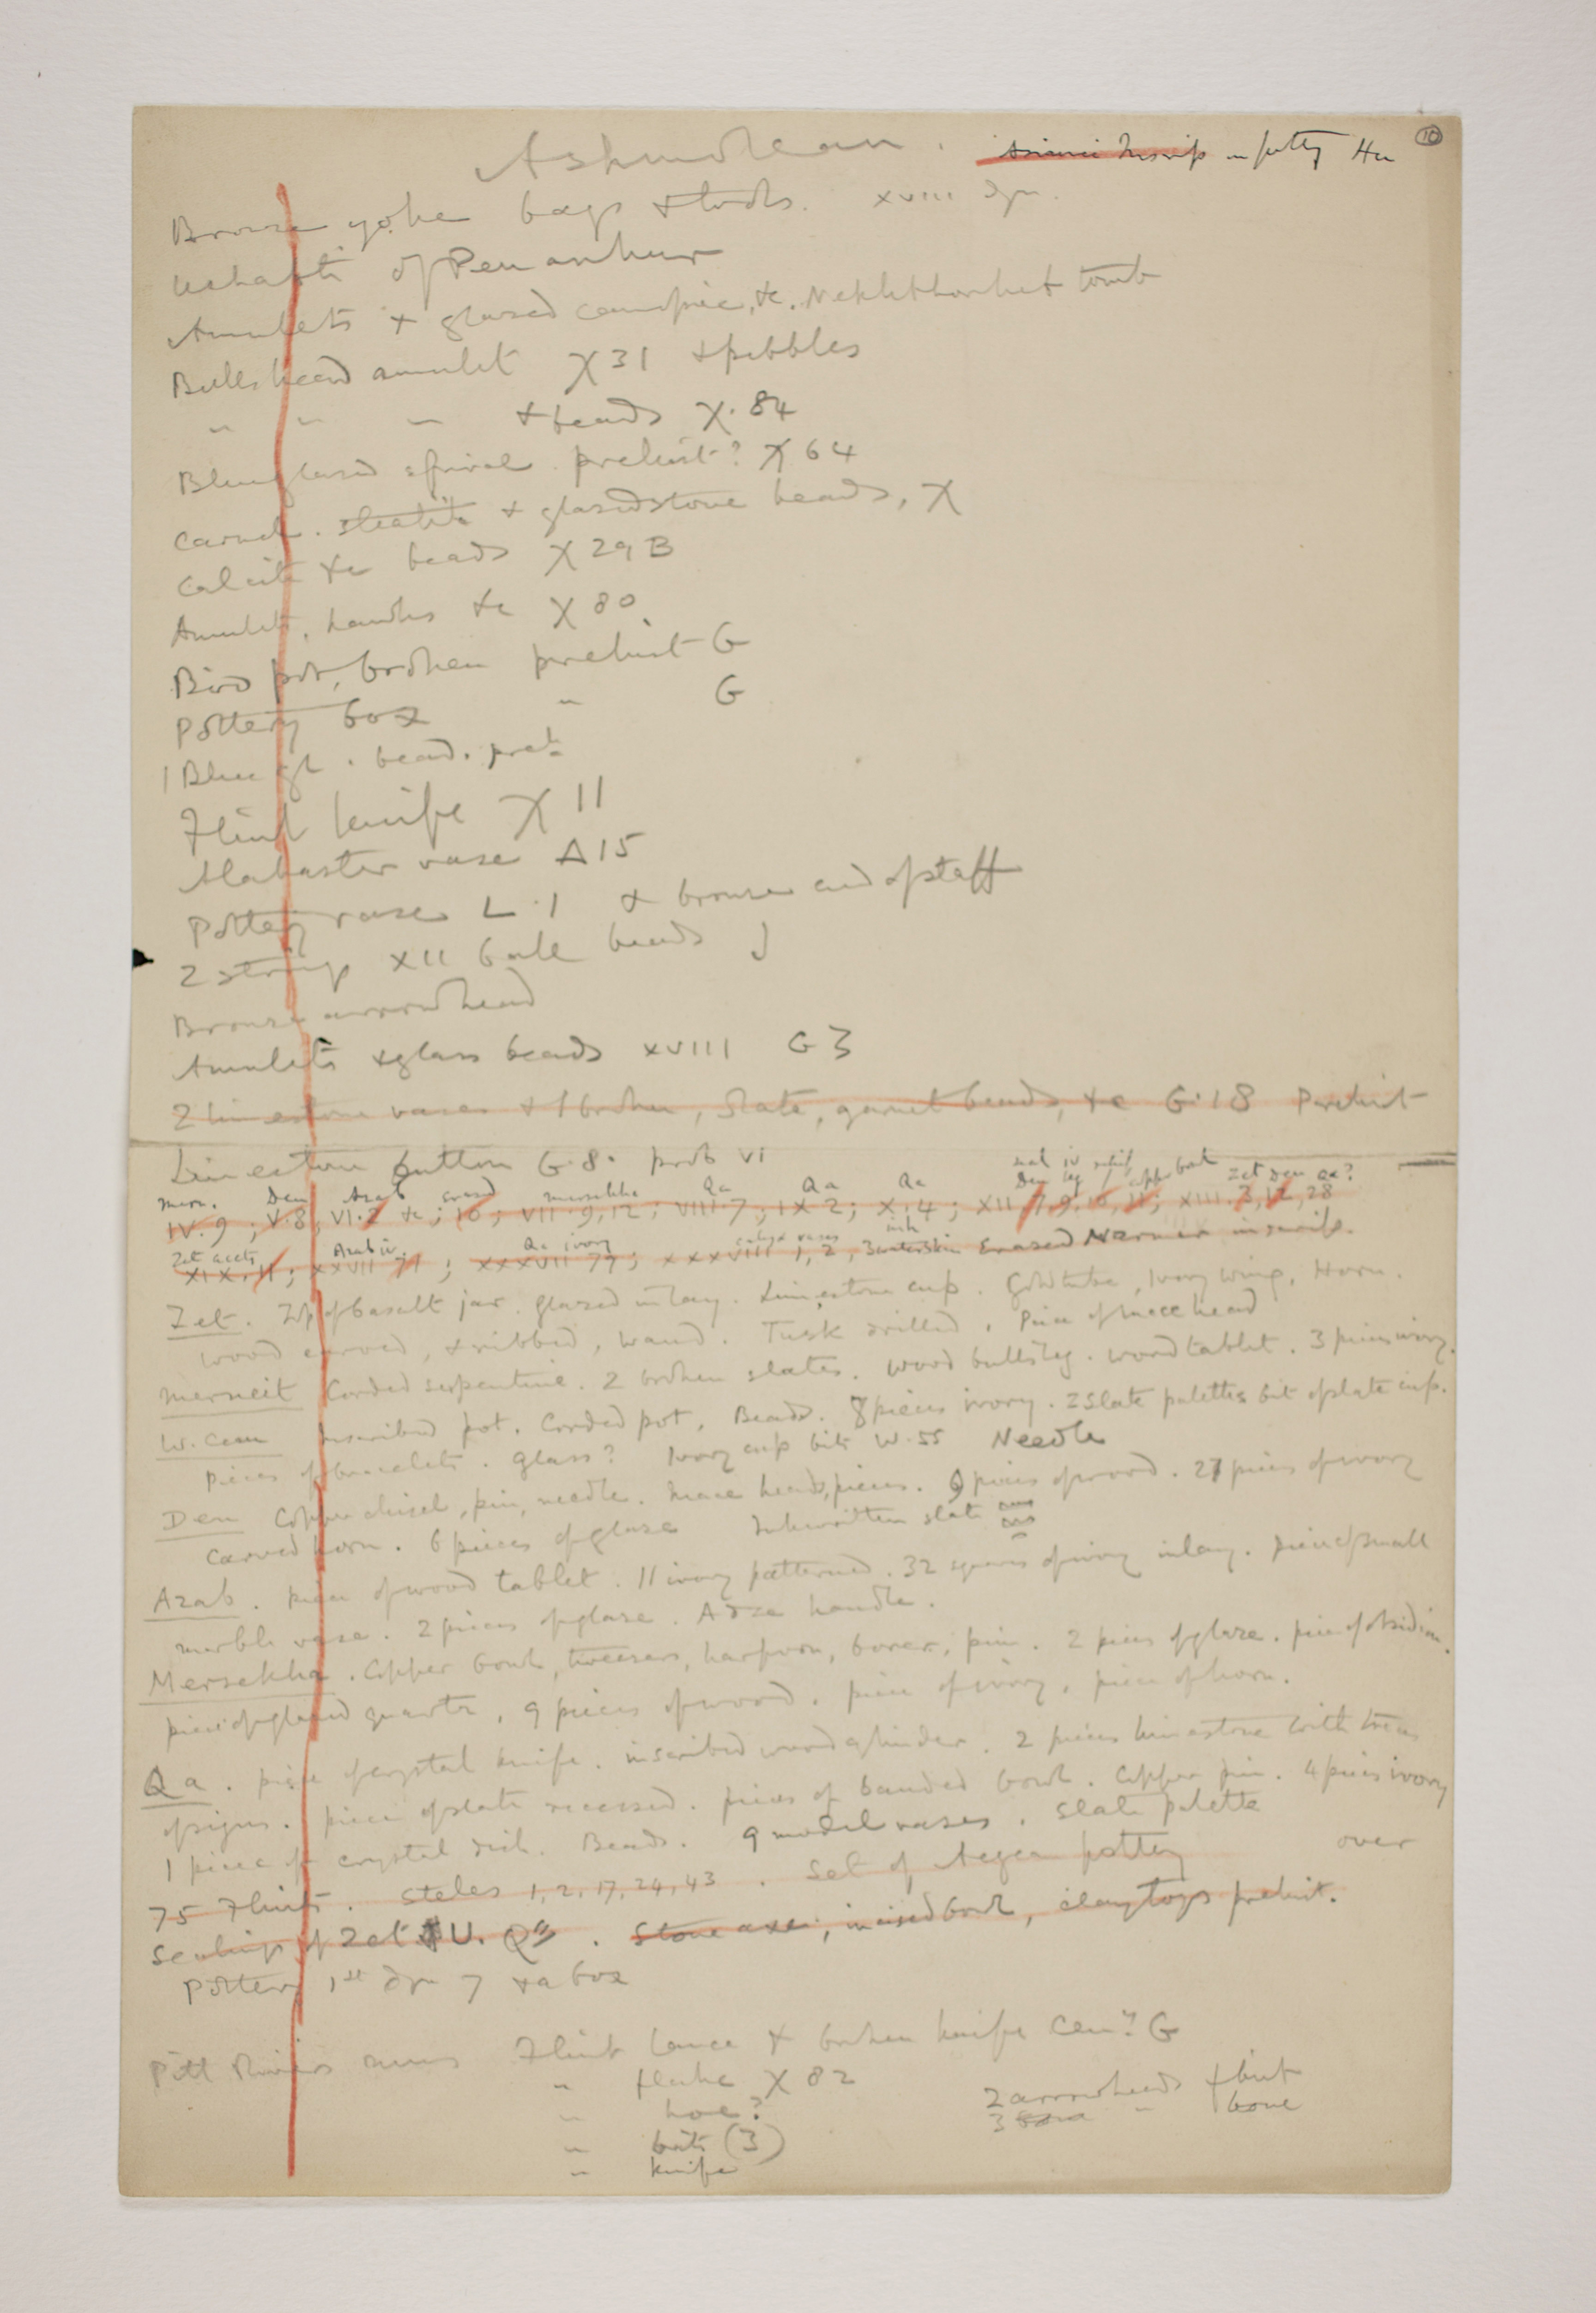 Ashmolean. inscrip on pottery Hu 10
Bronze yoke bags & tools. XVIII Dyn.
Ushabti of Pen anhur
Amulets & glazed canopic, &c. Nekhthorheb tomb
Bulls head amulet X 31 & pebbles
" " " & beads X. 84
Blue glazed spiral. prehist? X 64
Carnel. steatite & glazed stone beads, X
Calcite &c beads X 29 B
Amulets, hawks &c X 80
Bird pot, broken prehist G
Pottery box " G
1 Blue gl. bead. preh.
Flint knife X 11
Alabaster vase A 15
Pottery vases L. 1 & bronze end of staff
2 strings XII ball beads J
Bronze arrowhead
Amulets & glass beads XVIII G 3
2 limestone vases & 1 broken, Slate, garnet beads, &c G. 18 Prehist
Limestone button G. 8. prob VI
Mern. Den Azab erased mersekha Qa Qa Qa Den leg copper bowl Zet Den Qa?
IV. 9; V. 8; VI. 2 &c; 10; VII. 9, 12; VIII. 7; IX 2; X. 4; XII 7, 9, 10, 11; XIII. 3, 12, 28
Zet Azab iv. Qa ivory vases
XIX. 11; XXVII 71; XXXVII 77; XXXVIII 1, 2, 3 Erased Narmer inscrip.
Zet. Top of basalt jar. Glazed inlay. Limestone cup. Gold tube, Ivory wing, Horn.
Wood carved, & ribbed, wand. Tusk drilled. Piece of mace head
Merneit Corded serpentine. 2 broken slates. Wood bulls leg. Wood tablet. 3 pieces ivory.
W. Cem Inscribed pot. Corded pot, Beads. 8 pieces ivory. 2 Slate palettes bit of slate cup.
Pieces of bracelets. Glass? Ivory cup bits W. 55 Needle
Den Copper chisel, pin, needle. Mace heads, pieces. 9 pieces of wood. 27 pieces of ivory
Carved horn. 6 pieces of glaze Inkwritten slate
Azab. Piece of wood tablet. 11 ivory patterned. 32 squares of ivory inlay. Piece of small
marble vase. 2 pieces of glaze. Adze handle.
Mersekha. Copper bowl, tweezers, harpoon, borer, pin. 2 pieces of glaze. piece of obsidian.
piece of glazed quartz, 9 pieces of wood. piece of ivory, piece of horn.
Qa. piece of crystal knife. inscribed wood cylinder. 2 pieces limestone with traces
of signs. piece of slate recessed. pieces of banded bowl. Copper pin. 4 pieces ivory
1 piece of crystal dish. Beads. 9 model vases. Slate palette
75 Flints. Steles 1, 2, 17, 24, 43. Set of Aegean pottery over
Sealings of Zet U. Qa. Stone axe, incised bowl, clay toys prehist.
Pottery 1st dyn 7 & a box
Pitt Rivers mus Flint lance & broken knife Cem? G
" flake X 82
" hoe? 2 arrowheads flint
" bits (3) 3 " bone
" knife